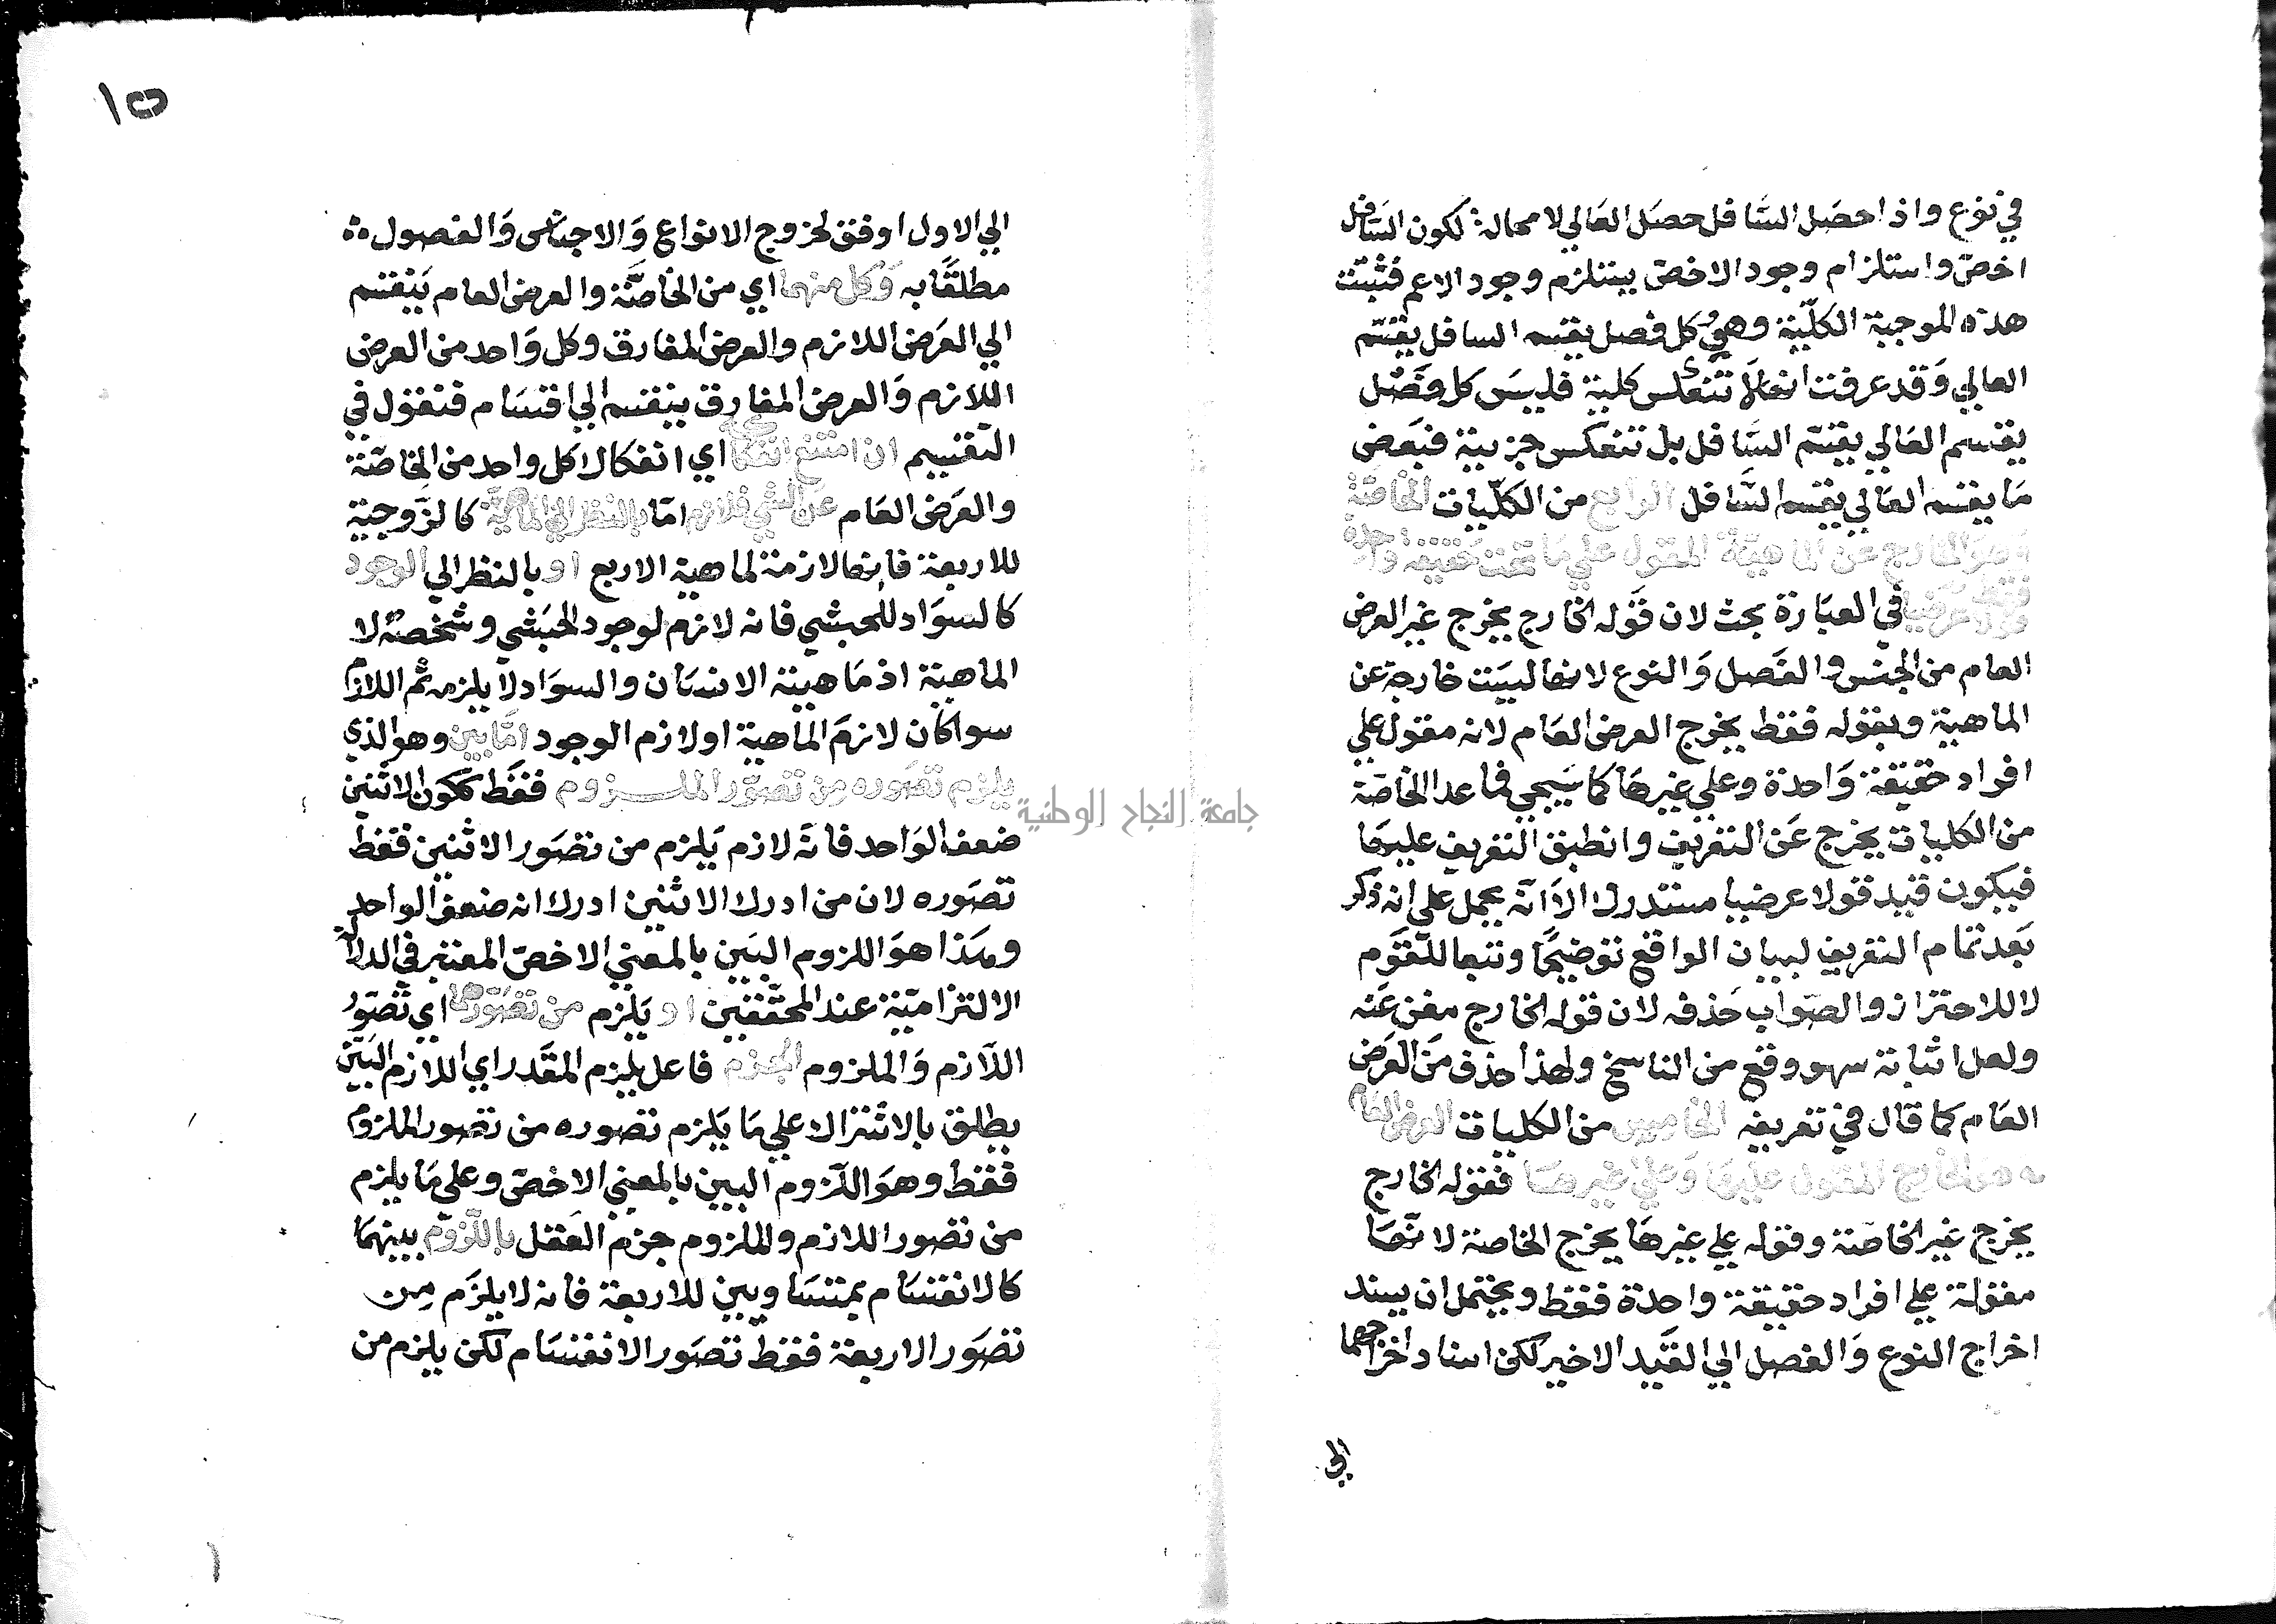 في نوع واذا حصَل السَّافل حصَل العَالي لا محالة لكون السَافل
اخصّ واستلزام وجود الاخصّ يستلزم وجود الاعم فثبتت
هذه الموجبة الكلّية وهي كل فصل يقسم السافل يقسّم
العالي وَقد عرفت انها لا تنعكس كلية فليسَ كل فصْل
يقسم العَالي يقسّم السَّافل بل تنعكس جزيية فبَعض
مَا يقسم العَالي يقسم السَّافل الرابع من الكلّيات الخاصّة
وهوَ الخارج عن الماهيّة المقول علي مَا تحت حقيقة واحدة
فقط قولا عرضيا في العبَارة بحث لان قَوله الخارج يخرج غير العرض
العام من الجنس والفَصل وَالنوع لانها ليسَت خارجة عن
الماهية وبقوله فقط يخرج العرض العَام لانه مقول علي
افراد حقيقة وَاحدة وعلي غيرهَا كما سَيجي فما عدا الخاصّة
من الكليات يخرج عَن التعريف وانطبق التعريف عليهَا
فيكون قيد قولا عرضيا مستدرك الاَ انّه يحمل علي انه ذكر
بَعد تمام التعريف لبيان الواقع توضيحًا وتبعا للقَوم
لا للاحتراز والصّوابُ حَذفه لان قوله الخارج مغن عَنه
ولعل اثباته سهو وقع من الناسخ ولهذا حذف مَن العَرض
العَام كما قال في تعريفه الخامس من الكليات العرض العَام
وهوَ الخارج المقول عليهَا وَعلي غيرهَا فقوله الخارج
يخرج غير الخاصّة وقوله علي غيرهَا يخرج الخاصة لانّهَا
مقولة علي افراد حقيقة واحدة فقط ويحتمل ان يسند
اخراج النوع وَالفصل الي القَيد الاخير لكن اسناد اخراجهما
الي
١٥
الي الاول اوفق لخروج الانواع وَالاجناس وَالفصول
مطلقًا به وَكل منهما اي من الخاصَّة والعرض العام يَنقسم
الي العَرَض اللازم والعرض المفارق وكل وَاحد من العرض
اللازم وَالعرض المفارق ينقسم الي اقسَام فنقول في
التقسيم ان امتنع انفكاكه اي انفكاك كل واحد من الخاصّة
والعَرَض العَام عَن الشي فلازم امّا بالنظر الي الماهيّة كالزّوجية
للاربعة فانها لازمة لماهية الاربع او بالنظر الي الوجود
كالسوَاد للحبشي فانه لازم لوجود الحبَشي وشخصه لا
الماهية اذ مَاهية الانسَان والسوَاد لا يلزمه ثم اللازم
سوا كان لازمَ الماهية او لازم الوجود امّا بين وهو الذي
يلزم تصَوره مِن تصوّر الملزوم فقَط ككون الاثنين
ضعف الوَاحد فانّه لازم يَلزم من تصَور الاثنين فقط
تصَوره لان من ادرك الاثنين ادرك انه ضعف الواحد
وهَذا هوَ اللزوم البَين بالمعني الاخصّ المعتبر في الدلالة
الالتزاميّة عند المحقّقين او يَلزم من تصَوّرهما اي تصَوّر
اللاّزم وَالملزوم الجزم فاعل يلزم المقَدر اي اللازم البَين
يطلق بالاشتراك علي مَا يَلزم تصَوره من تصَور الملزوم
فقط وهوَ اللّزوم البين بالمعني الاخصّ وعلي مَا يلزم
من تصَور اللازم والملزوم جزم العَقل باللّزوم بينهمَا
كالانقسَام بمتسَاويين للاربعة فانه لا يلزَم مِن
تصَور الاربعة فقط تصَور الانقسَام لكن يلزم من
جامعة النجاح الوطنية